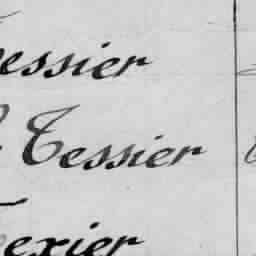 essier
Tessier
exier